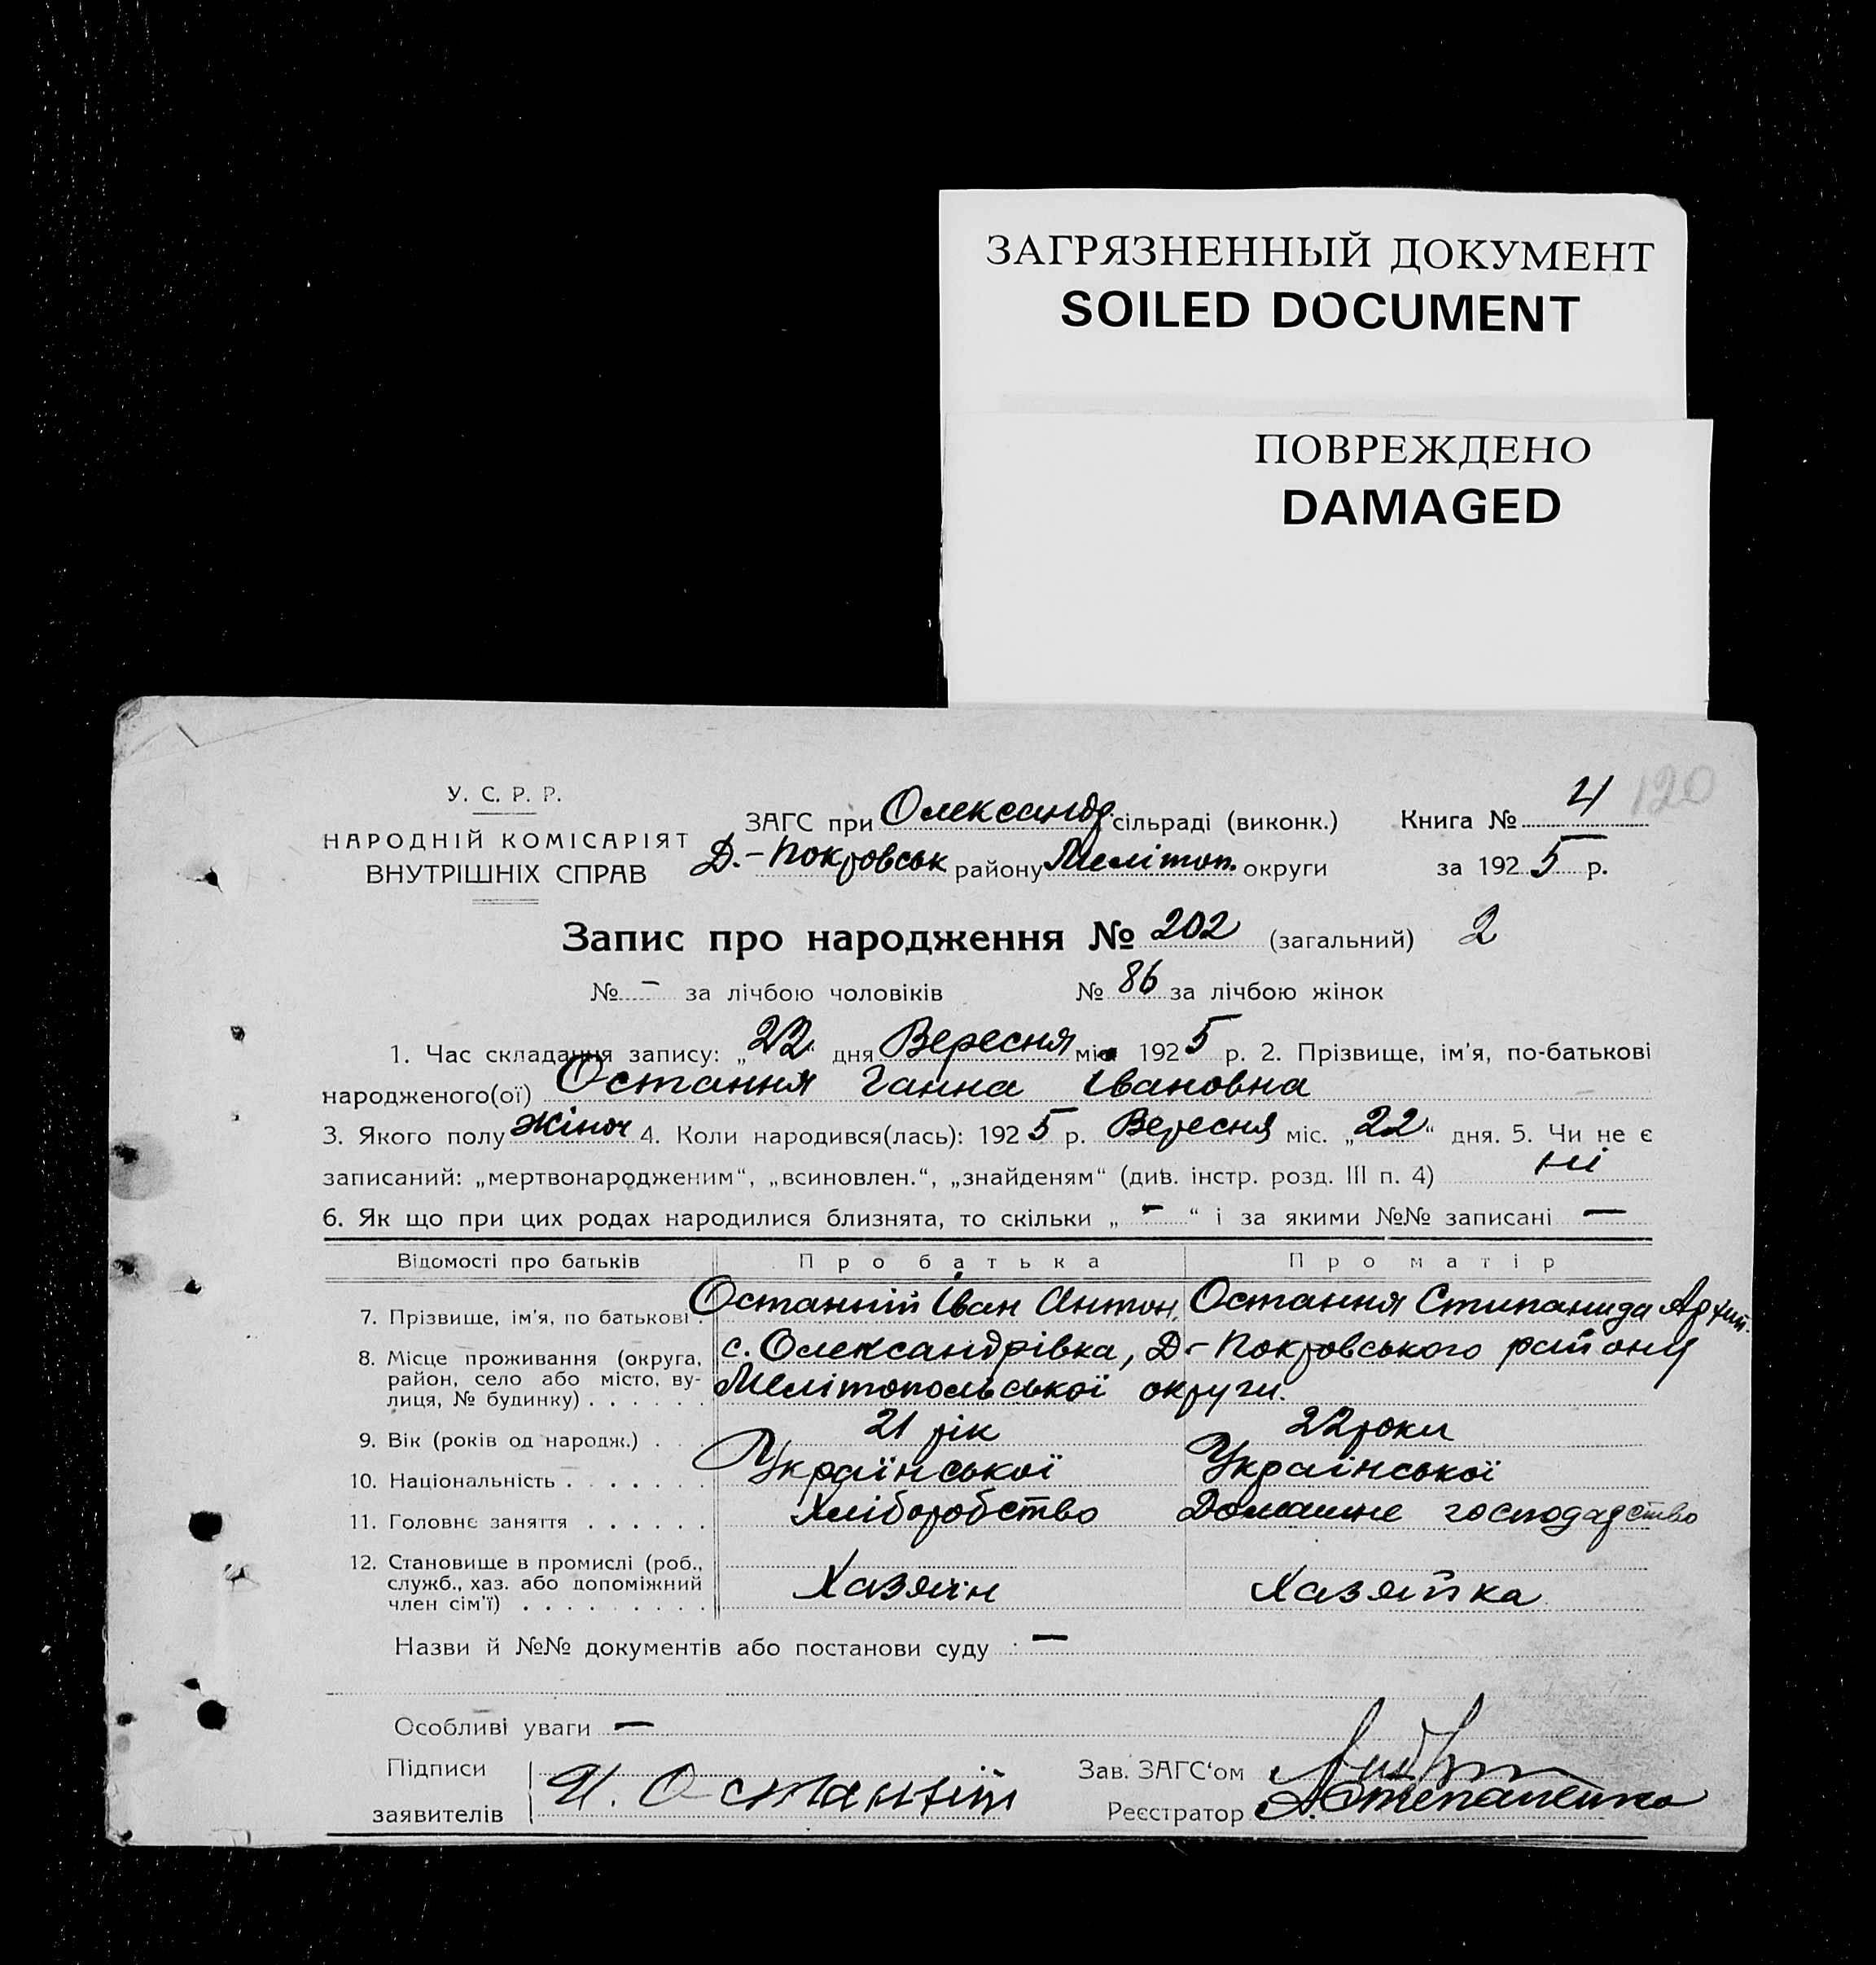 ЗАГРЯЗНЕННЫЙ ДОКУМЕНТ
SOILED DOCUMENT
ПОВРЕЖДЕНО
DAMAGED
120
У. С. Р. Р.
НАРОДНІЙ КОМІСАРІЯТ
ВНУТРІШНІХ СПРАВ
ЗАГС при Олександр. сільраді (виконк.) Книга № 4
Д.-Покровськ району Мелітоп. округи за 1925 р.
Запис про народження № 202 (загальний) 2
№ - за лічбою чоловіків № 86 за лічбою жінок
1. Час складання запису: „22“ дня Вересня міс 1925 р. 2. Прізвище, ім'я, по-батькові
народженого(ої) Остання Ганна Івановна
3. Якого полу жіноч 4. Коли народився(лась): 1925 р. Вересня міс. „22“ дня. 5. Чи не є
записаний: „мертвонародженим“, „всиновлен.“, „знайденям“ (див. інстр. розд. III п. 4) ні
6. Як що при цих родах народилися близнята, то скільки „ - “ і за якими №№ записані —
Відомості про батьків Про батька Про матір
7. Прізвище, ім'я, по батькові . Останній Іван Антон. Остання Степанида Архип.
8. Місце проживання (округа, район, село або місто, вулиця, № будинку) . . . . . . с. Олександрівка, Д-Покровського району
Мелітопольської округи.
9. Вік (років од народж.) . . 21 рік 22 роки
10. Національність . . . . . . . Української Української
11. Головне заняття . . . . . . Хліборобство Домашне господарство
12. Становище в промислі (роб.,
служб., хаз. або допоміжний
член сім'ї) . . . . . . . . . Хазяїн Хазяйка
Назви й №№ документів або постанови суду : —
Особливі уваги —
Підписи
заявителів И. Останній
Зав. ЗАГС'ом
Реєстратор А. Степаненко